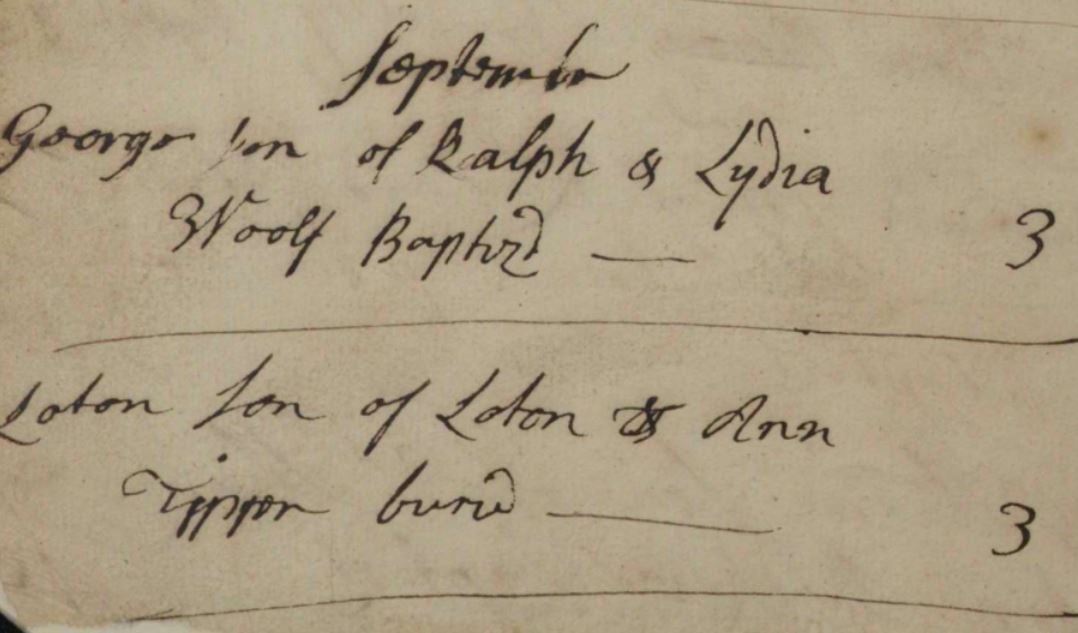 September
George son of Ralph & Lydia
Woolf Baptizd — 3
Loton son of Loton & Ann
Tipper buried — 3